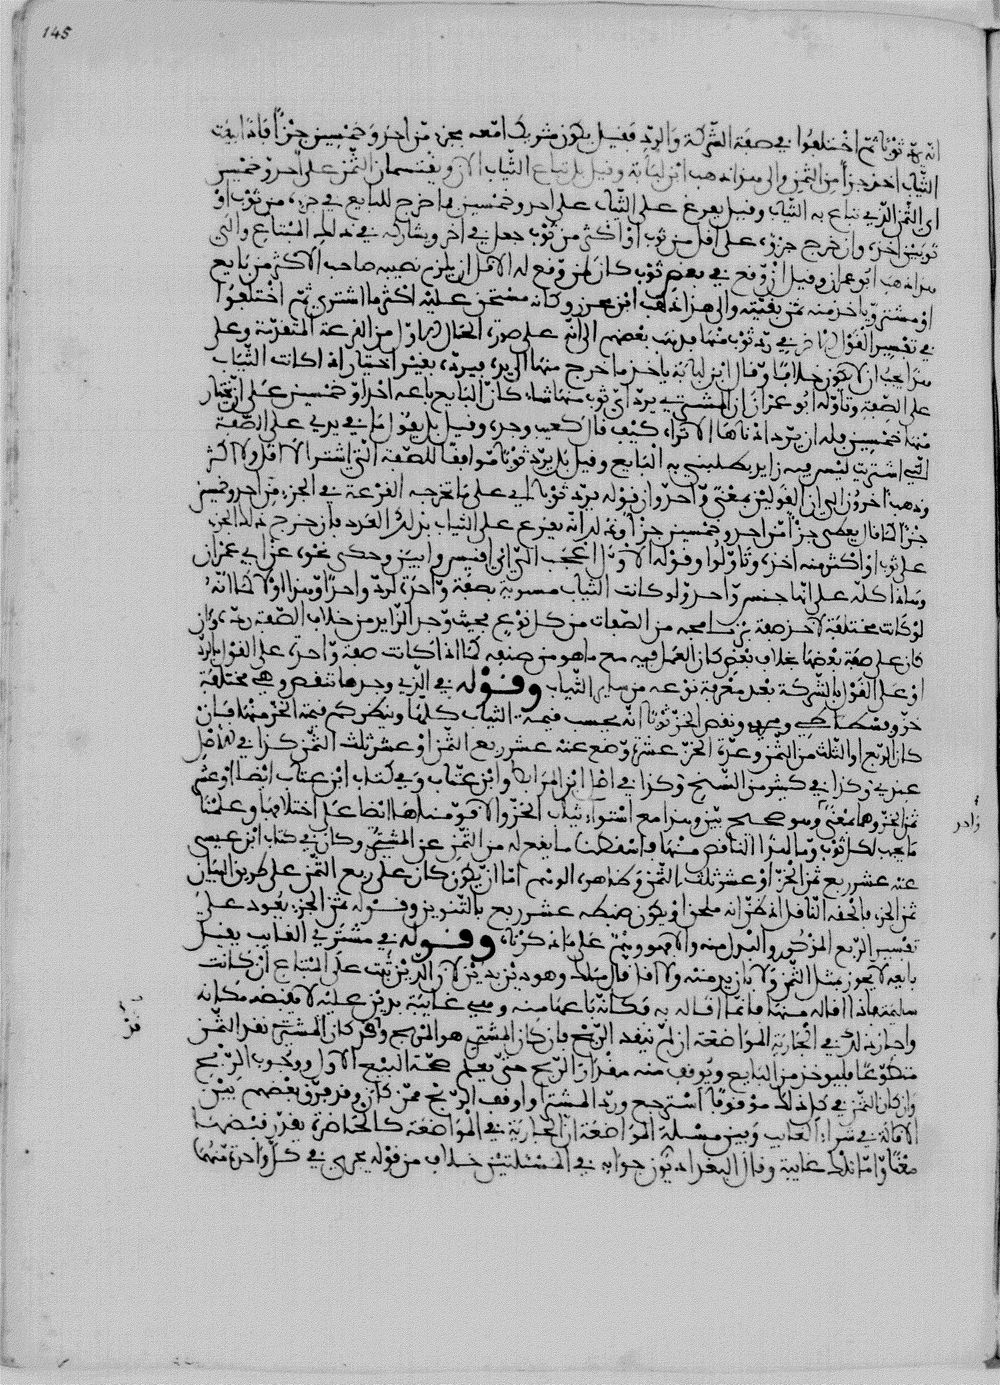 145
انه يرد ثوبا ثم اختلفوا في صفة الشركة والرد فقيل يكون شريكا معه بجزء من احد وخمسين جزءا فاذا بيعت
الثياب اخذ جزءا من الثمن والى هذا ذهب ابن لبابة وقيل بل تباع الثياب الان ويقتسمان الثمن على احد وخمسين
اي الثمن الذي تباع به الثياب وقيل يقرع على الثياب على احد وخمسين فما خرج للبايع في جزء من ثوب او
ثوبين اخذه وان خرج جزؤه على اقل من ثوب او اكثر من ثوب جعل في اخر ويشاركه في ذلك المبتاع والى
هذا ذهب ابو عمران وقيل ان وقع في بعض ثوب كان لمن وقع له الاقل ان يلزم نصيبه صاحب الاكثر من بايع
او مشتر وياخذ منه ثمن بقيته والى هذا ذهب ابن محرز وكانه مستحق عليه اكثر ما اشترى ثم اختلفوا
في تفسير القول الاخر في رد ثوب منها فذهب بعضهم الى انه على صورة الحال الاول من القرعة المتقدمة وعلى
هذا يجب ان لا يكون خلافا وقال ابن لبابة ياخذ ما خرج منها الى يده فيرده بغير اختيار اذا كانت الثياب
على الصفة وتاوله ابو عمران ان المشتري يرد اي ثوب منها شاء كان البايع باعه احدا وخمسين على ان يختار
منها خمسين فله ان يرد ادناها الا تراه كيف قال كعيب وجده وقيل بل يقول ما في يدي على الصفة
التي اشتريت ليس فيه زايد يطلبني به البايع وقيل بل يرد ثوبا موافقا للصفة التي اشترى لا اقل ولا اكثر
وذهب اخرون الى ان القولين بمعنى واحد وان قوله يرد ثوبا اي على ما تخرجه القرعة في الجزء من احد وخمسين
جزءا كما قال يعطى جزءا من احد وخمسين جزءا وذلك انه يقرع على الثياب بذلك العدد فان خرج ذلك الجزء
على ثوب او اكثر منه اخذه وتاولوا وقوله الاول اعجب الي اي اقيس وابين وحكي نحوه عن ابي عمران
وهذا كله على انها جنس واحد ولو كانت الثياب مستوية بصفة واحدة لرد واحدا وهذا اولا كما انه
لو كانت مختلفة لاحد صفة من الصفات من كل نوع بحيث وجد الزايد من خلاف الصفة رده وان
كان على صفة بعضها بخلاف بعض كان العمل فيه مع ما هو من صنفه كما اذا كانت صفة واحدة على القول بالرد
او على القول بالشركة بعد معرفة نوعه من ساير الثياب وقوله في الذي وجدها تنقص وهي مختلفة
خز ونقص الخز ثوبا انه يحسب قيمة الثياب كلها وينظر كم قيمة الخز منها فان
كان الربع او الثلث من الثمن وعدة الخز عشرة وضع عنه عشر ربع الثمن او عشر ثلث الثمن كذا في الاصل
عندي وكذا في كثير من النسخ وكذا في اصل ابن المرابط وابن عتاب وفي كتاب ابن عتاب ايضا او عشر
ثمن الخز وهما بمعنى وهو صحيح بين وهذا مع استواء ثياب الخز والا قومناها ايضا على اختلافها وعلمنا
ما يجب لكل ثوب وما لهذا الناقص منها فاسقطنا ما يقع له من الثمن عن المشتري وكان في كتاب ابن عيسى
عنه عشر ربع ثمن الخز او عشر ثلث بالثمن وظاهره الوهم اما ان يكون كان على ربع الثمن على طريق البيان
ثمن الخز فالحقه الناقل اذ ظن انه ملحق او يكون ضبطه عشر ربع بالتنوين وقوله ثمن الخز يعود على
تفسير الربع المذكور والبدل منه والا فهو وهم على ما ذكرناه وقوله في مشتري الغايب يقيل
بايعه لا يجوز بمثل الثمن ولا بازيد منه ولا اقل قال مالك وهو دين بدين لان الدين ثبت على المبتاع ان كانت
سالمة فاذا اقاله منها فانما اقاله به فكانه باعها منه وهي غايبة بدين عليه لا يقبضه مكانه
واجاز ذلك في الجارية المواضعة ان لم ينقد الربح فان كان المشتري هو المربح وقد كان المشتري نقد الثمن
متطوعا فليوخذ من البايع ويوقف منه مقدار الربح حتى يعلم صحة البيع الاول ووجوب الربح
وان كان الثمن في كل ذلك موقوفا استرجع ورد المشتري واوقف الربح ممن كان وقد فرق بعضهم بين
الاقالة في شراء الغايب وبين مسئلة المواضعة ان الجارية في المواضعة كالحاضرة يقدر قبضها
معنا واما تلك غايبة وقال البغداديون جوابه في المسئلتين خلاف من قوله يجري في كل واحدة منهما
واحد